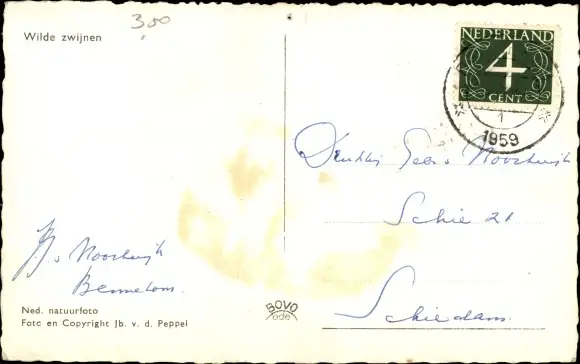 3.50
Wilde zwijnen
NEDERLAND
4
CENT
1
1959
Schie 21
Schiedam.
Bennekom.
Ned. natuurfoto
Foto en Copyright Jb. v. d. Peppel
BOVO
ede